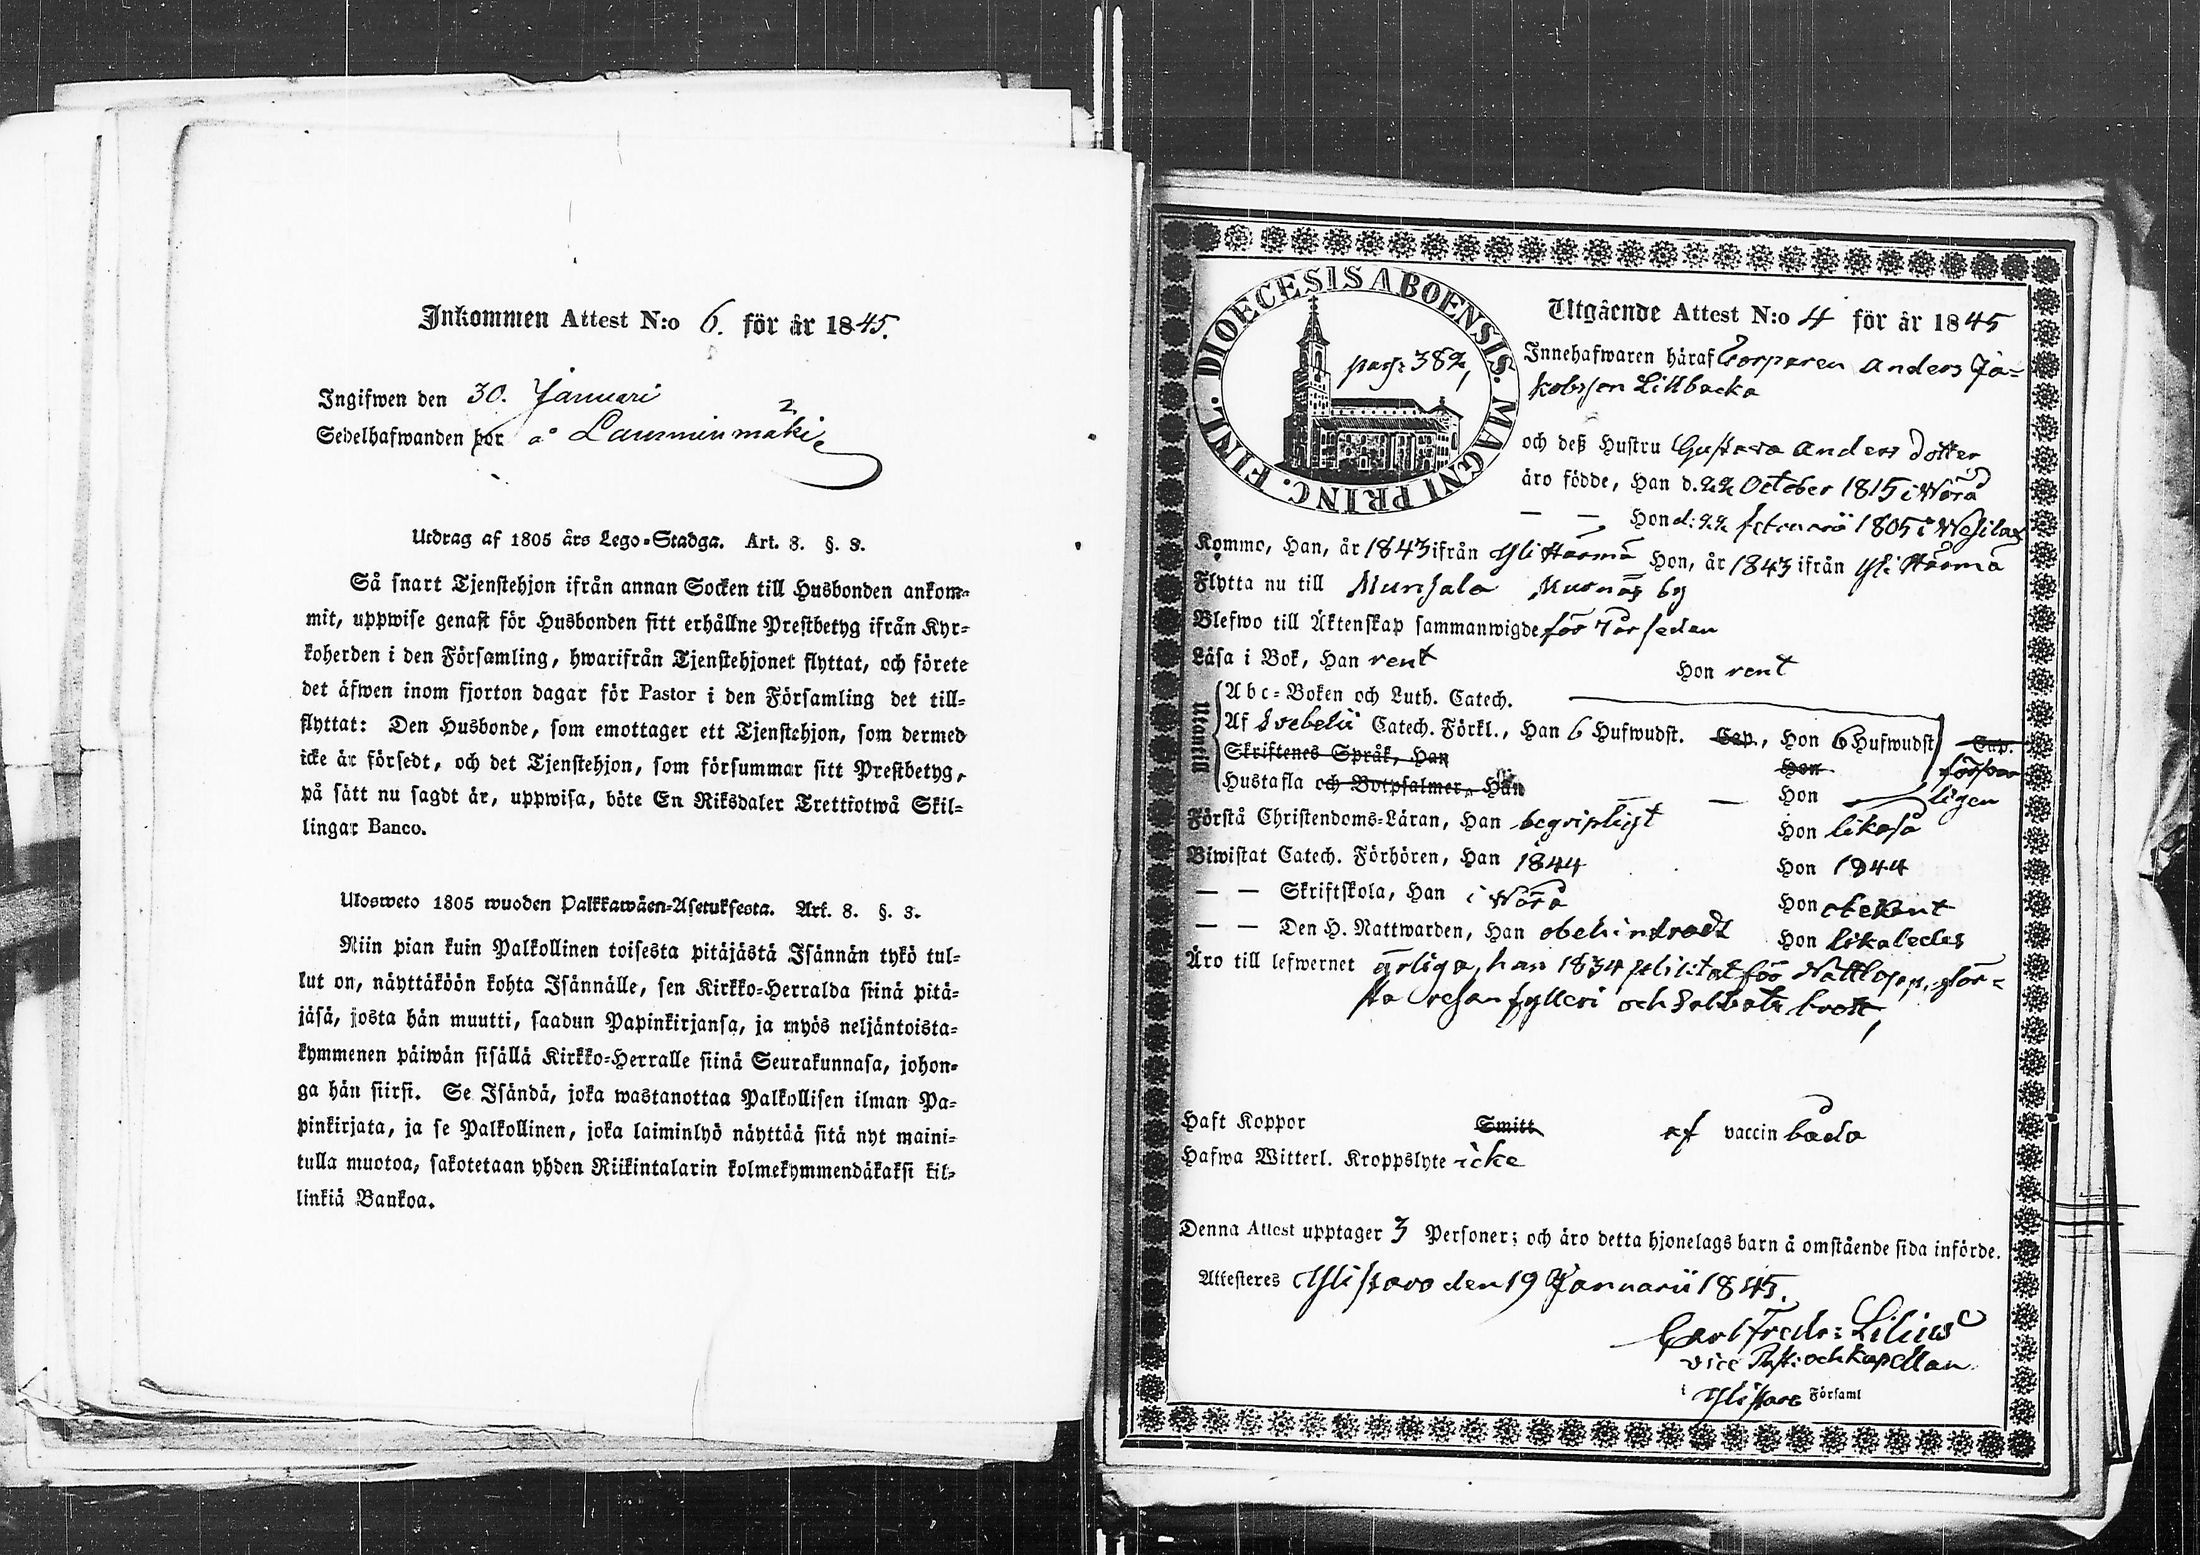 Inkommen Attest N:o 6. för år 1845.
Ingifwen den 30. Januari
Sedelhafwanden bor å Lawminmäki 2
Utdrag af 1805 års Lego-Stadga. Art. 8. §. 8.
Så snart Tjenstehjon ifrån annan Socken till Husbonden ankom-
mit, uppwise genast för Husbonden sitt erhållne Prestbetyg ifrån Kyr-
koherden i den Församling, hwarifrån Tjenstehjonet flyttat, och förete
det äfwen inom fjorton dagar för Pastor i den Församling det till-
flyttat: Den Husbonde, som emottager ett Tjenstehjon, som dermed
icke är försedt, och det Tjenstehjon, som försummar sitt Prestbetyg,
på sätt nu sagdt är, uppwisa, böte En Riksdaler Trettiotwå Skil-
lingar Banco.
Ulosweto 1805 wuoden Palkkawäen-Asetuksesta. Art. 8. §. 3.
Niin pian kuin Palkollinen toisesta pitäjästä Isännän tykö tul-
lut on, näyttäköön kohta Isännälle, sen Kirkko-Herralda siinä pitä-
jäsä, josta hän muutti, saadun Papinkirjansa, ja myös neljäntoista-
kymmenen päiwän sisällä Kirkko-Herralle siinä Seurakunnasa, johon-
ga hän siirsi. Se Isändä, joka wastanottaa Palkollisen ilman Pa-
pinkirjata, ja se Palkollinen, joka laiminlyö näyttää sitä nyt maini-
tulla muotoa, sakotetaan yhden Riikintalarin kolmekymmendäkaksi kil-
linkiä Bankoa.
DIOECESIS ABOENSIS. MAGNI PRINC. FINL.
pag: 382,
Utgående Attest N:o 4 för år 1845
Innehafwaren häraf Torparen Anders Ja-
kobsson Lillbacka
och deß Hustru Gustava Anders dotter
äro födde, Han d. 22 October 1815 i Wörå
— — Hon d: 22 februarii 1805 i
Kommo, Han, år 1843 ifrån Yli Härmä Hon, år 1843 ifrån Yli Härmä
Flytta nu till Munsala Murnäs by
Blefwo till Äktenskap sammanwigde för 7 år sedan
Läsa i Bok, Han rent Hon rent
Utantill
Abc-Boken och Luth. Catech.
Af Svebelii Catech. Förkl., Han 6 Hufwudst. Cap., Hon 6 Hufwudst Cap.
Skriftenes Språk, Han Hon försvar
Hustafla och Botpsalmer, Han Hon ligen
Förstå Christendoms-Läran, Han begripligt Hon likaså
Biwistat Catech. Förhören, Han 1844 Hon 1844
— — Skriftskola, Han i Wörå Hon obekant
— — Den H. Nattwarden, Han obehindradt Hon likaledes
Äro till lefwernet ärliga, han 1834 pliktat för Nattlopp, för-
sta resan fylleri och Sabbats brott,
Haft Koppor Smitt af vaccin båda
Hafwa Witterl. Kroppslyte icke
Denna Attest upptager 3 Personer; och äro detta hjonelags barn å omstående sida införde.
Attesteres Ylistaro den 19 Januarii 1845.
Carl Fredr: Lilius
vice Past: och kapellan
i Ylistaro Församl